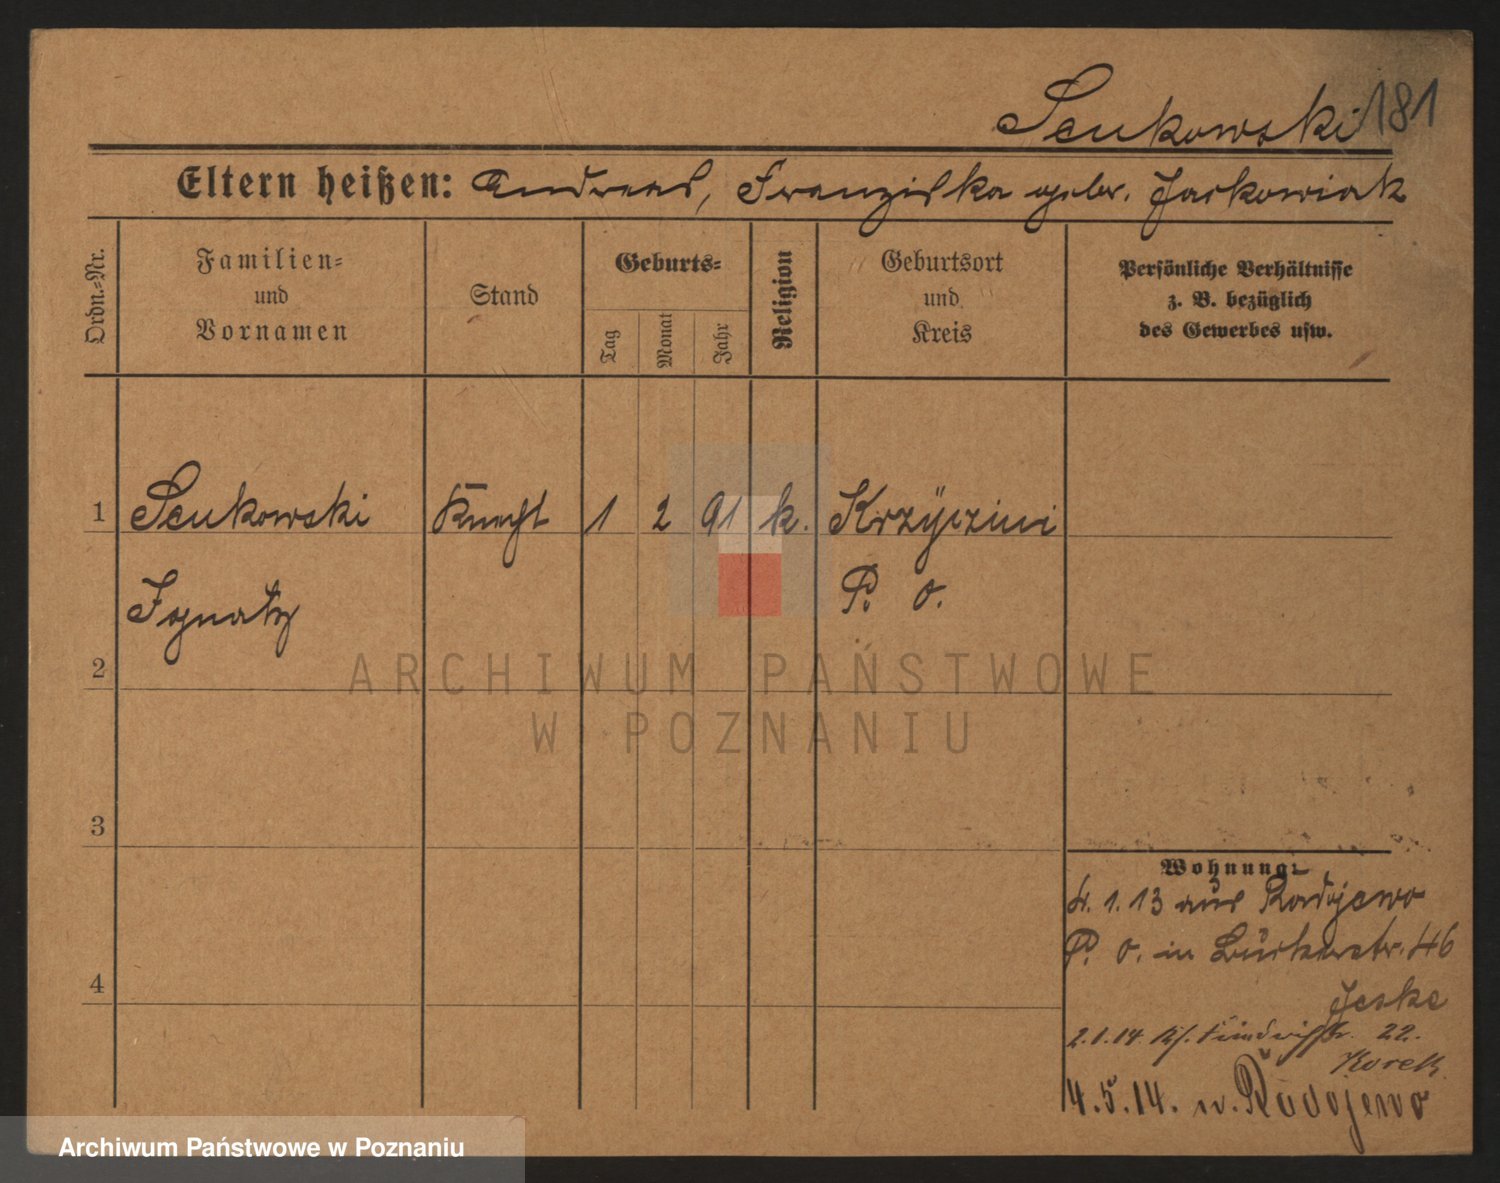 Senkowski 181
Eltern heißen: Andreas, Franziska gebr. Jackowiak
Ordn.-Nr.
Familien- und Vornamen
Stand
Geburts-
Tag
Monat
Jahr
Religion
Geburtsort und Kreis
Persönliche Verhältnisse
z. B. bezüglich
des Gewerbes usw.
1 Senkowski Knecht 1 2 91 k. Krzÿczini
Ignatz P. O.
2
ARCHIWUM PAŃSTWOWE
W POZNANIU
3
Wohnung:
4. 1. 13 aus Radojewo
P. O. in 46
4
Jeske
2.1.14 22.
Korek
4.5.14. n. Radojewo
Archiwum Państwowe w Poznaniu